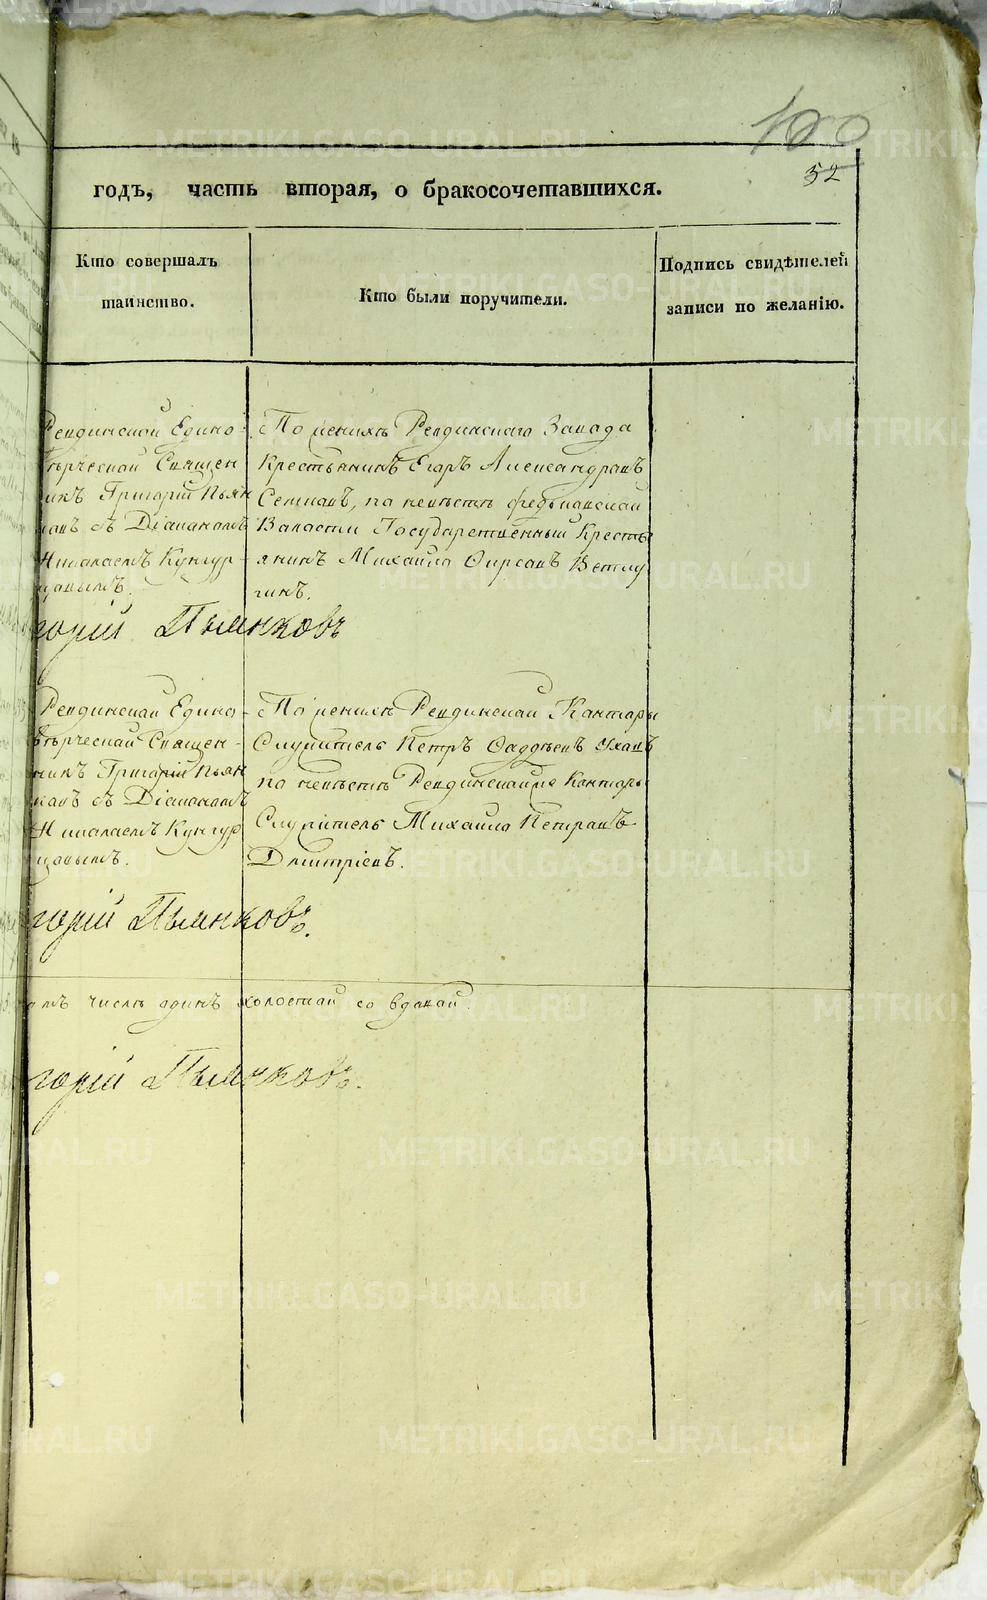 100
52
годъ, часть вторая, о бракосочетавшихся.
Кто совершалъ
таинство.
Кто были поручители.
Подпись свидѣтелей
записи по желанію.
Ревдинской Едино-
вѣрческай Священ
никъ Григорій Пьян
ковъ съ Діаконамъ
Николаемъ Кунгур-
цовымъ.
горій Пьянковъ
По женихѣ Ревдинскаго Завада
Крестьянинъ Егаръ Александравъ
по невѣстѣ
Валасти Государственный Кресть
янинъ Михаила Фирсавъ Ветлу
гинъ.
Ревдинскай Едино-
вѣрческай Священ-
никъ Григорій Пьян
ковъ съ Діаконамъ
Николаемъ Кунгур
цовымъ.
горій Пьянковъ.
По женихѣ Ревдинскай Кантары
Служитель Петръ Фаддѣевъ
по невѣстѣ Ревдинскайже Кантары
Служитель Михаила Петравъ
Дмитріевъ.
омъ числѣ адинъ холостай со вдавай.
горій Пьянковъ.
METRIKI.GASO-URAL.RU